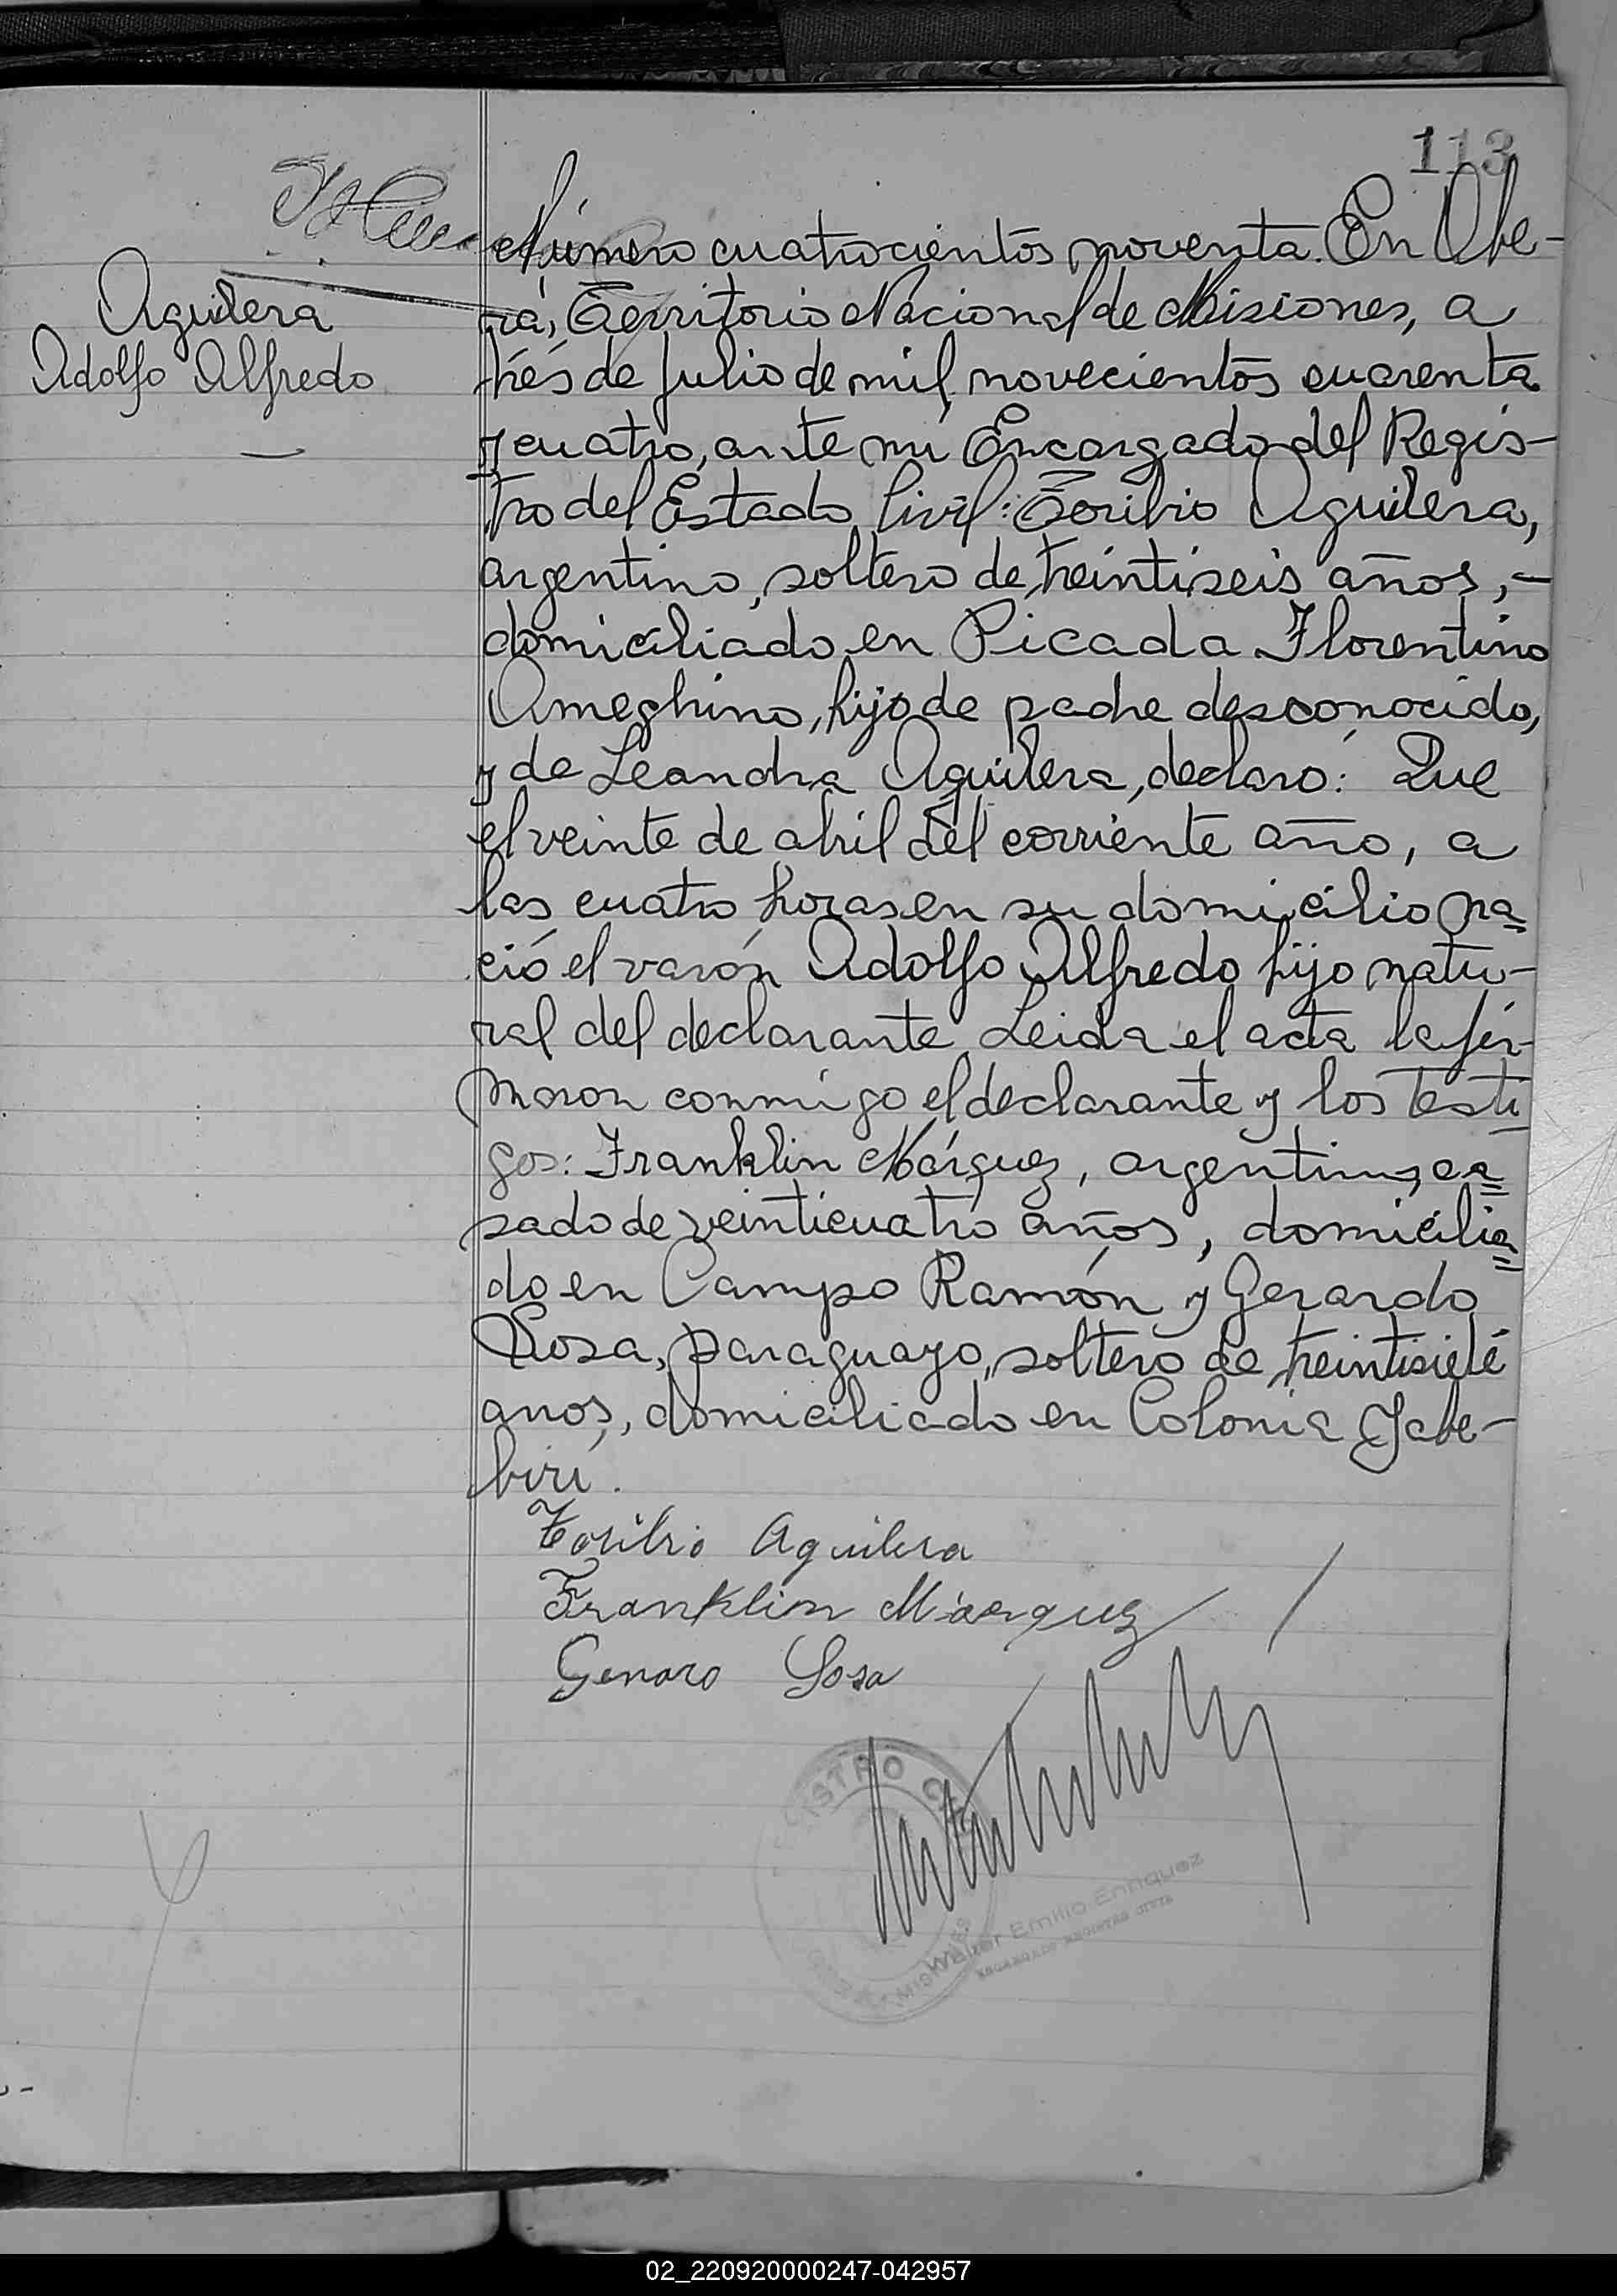 113
Aguilera
Adolfo Alfredo
Número cuatrocientos noventa. En Obe-
rá, Territorio Nacional de Misiones, a
trés de Julio de mil novecientos cuarenta
y cuatro, ante mi Encargado del Regis-
tro del Estado Civil: Toribio Aguilera,
argentino, soltero de treintiseis años, -
domiciliado en Picada Florentino
Ameghino, hijo de padre desconocido,
y de Leandra Aguilera, declaró: Que
el veinte de abril del corriente año, a
las cuatro horas en su domicilio na
ció el varón Adolfo Alfredo hijo natu-
ral del declarante Leida el acta la fir-
maron conmigo el declarante y los testi
gos: Franklin Márquez, argentino, ca
sado de veinticuatro años, domicilia
do en Campo Ramón y Gerardo
Sosa, paraguayo, soltero de treintisiete
anos, domiciliado en Colonia Yabe-
birí.
Toribio Aguilera
Franklin Márquez
Genaro Sosa
REGISTRO
MISIONES
Walter Emilio Enriquez
ENCARGADO REGISTRO CIVIL
02_220920000247-042957